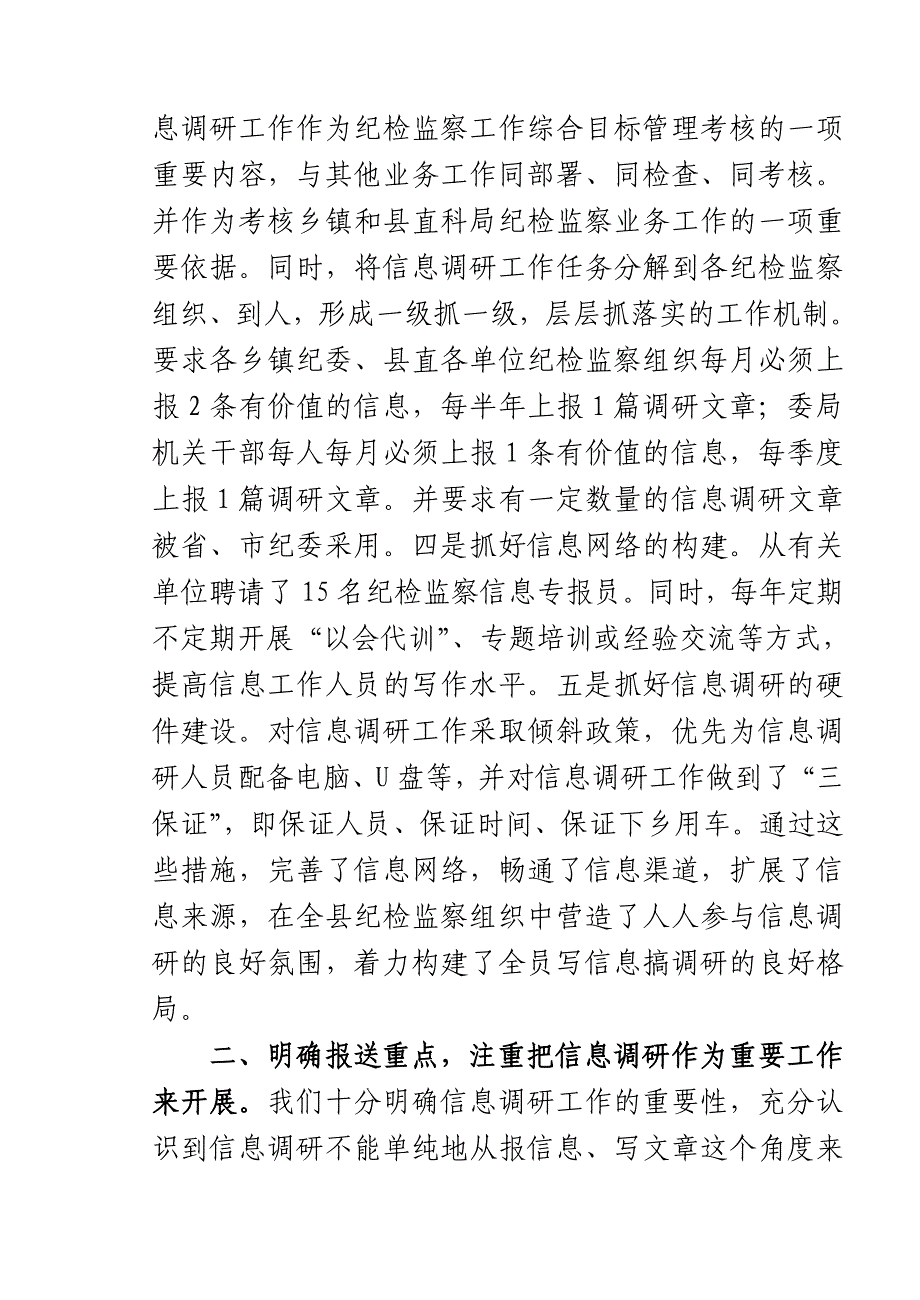 息调研工作作为纪检监察工作综合目标管理考核的一项
重要内容，与其他业务工作同部署、同检查、同考核。
并作为考核乡镇和县直科局纪检监察业务工作的一项重
要依据。同时，将信息调研工作任务分解到各纪检监察
组织、到人，形成一级抓一级，层层抓落实的工作机制。
要求各乡镇纪委、县直各单位纪检监察组织每月必须上
报2条有价值的信息，每半年上报1篇调研文章；委局
机关干部每人每月必须上报1条有价值的信息，每季度
上报1篇调研文章。并要求有一定数量的信息调研文章
被省、市纪委采用。四是抓好信息网络的构建。从有关
单位聘请了15名纪检监察信息专报员。同时，每年定期
不定期开展“以会代训”、专题培训或经验交流等方式，
提高信息工作人员的写作水平。五是抓好信息调研的硬
件建设。对信息调研工作采取倾斜政策，优先为信息调
研人员配备电脑、U盘等，并对信息调研工作做到了“三
保证”，即保证人员、保证时间、保证下乡用车。通过这
些措施，完善了信息网络，畅通了信息渠道，扩展了信
息来源，在全县纪检监察组织中营造了人人参与信息调
研的良好氛围，着力构建了全员写信息搞调研的良好格
局。
二、明确报送重点，注重把信息调研作为重要工作
来开展。我们十分明确信息调研工作的重要性，充分认
识到信息调研不能单纯地从报信息、写文章这个角度来